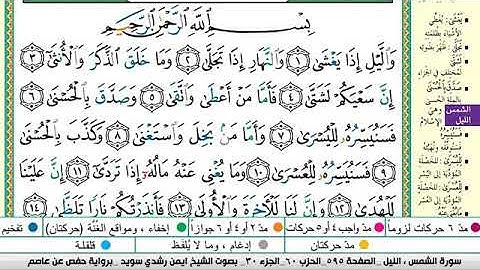 بِسْمِ اللَّهِ الرَّحْمَٰنِ الرَّحِيمِ
وَاللَّيْلِ إِذَا يَغْشَىٰ ١ وَالنَّهَارِ إِذَا تَجَلَّىٰ ٢ وَمَا خَلَقَ الذَّكَرَ وَالْأُنثَىٰ ٣
إِنَّ سَعْيَكُمْ لَشَتَّىٰ ٤ فَأَمَّا مَنْ أَعْطَىٰ وَاتَّقَىٰ ٥ وَصَدَّقَ بِالْحُسْنَىٰ ٦
فَسَنُيَسِّرُهُ لِلْيُسْرَىٰ ٧ وَأَمَّا مَنْ بَخِلَ وَاسْتَغْنَىٰ ٨ وَكَذَّبَ بِالْحُسْنَىٰ
٩ فَسَنُيَسِّرُهُ لِلْعُسْرَىٰ ١٠ وَمَا يُغْنِي عَنْهُ مَالُهُ إِذَا تَرَدَّىٰ ١١ إِنَّ عَلَيْنَا
لَلْهُدَىٰ ١٢ وَإِنَّ لَنَا لَلْآخِرَةَ وَالْأُولَىٰ ١٣ فَأَنذَرْتُكُمْ نَارًا تَلَظَّىٰ ١٤
الشمس
الليل
مدّ ٦ حركات لزوماً
مدّ واجب ٤ أو ٥ حركات
مدّ ٢ أو ٤ أو ٦ جوازاً
إخفاء ، ومواقع الغُنَّة (حركتان)
تفخيم
مدّ حركتان
إدغام ، وما لا يُلفَظ
قلقلة
سورة الشمس ، الليل _ الصفحة ٥٩٥ _ الحزب ٦٠ _ الجزء ٣٠ _ بصوت الشيخ أيمن رشدي سويد _ برواية حفص عن عاصم